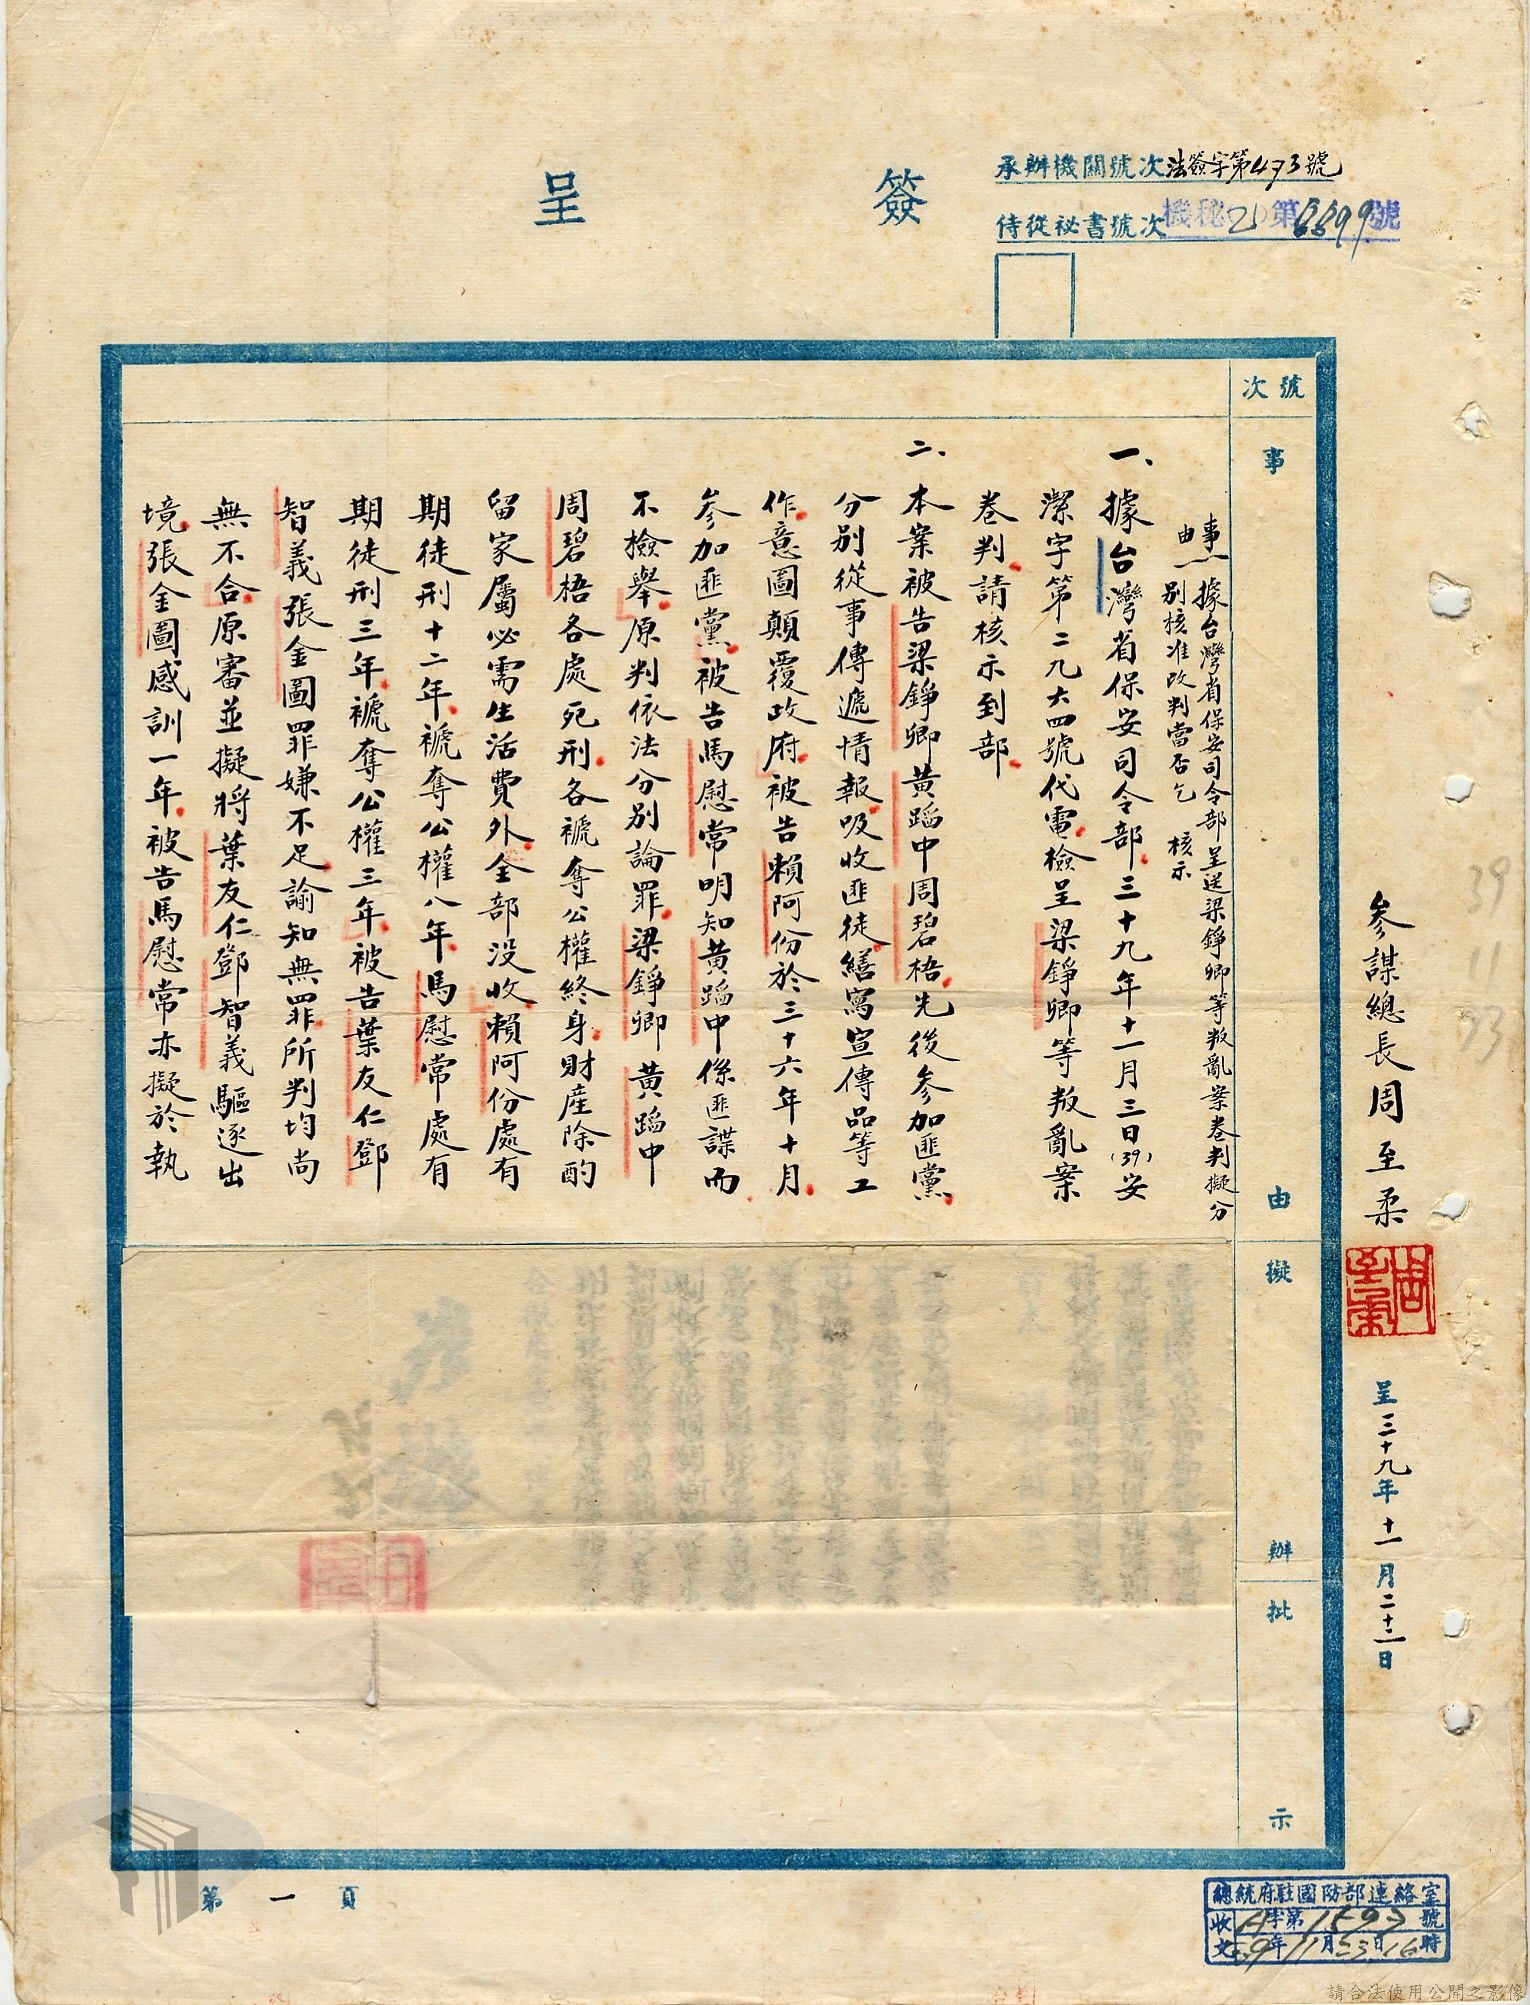 簽呈
承辦機關號次法簽字第473號
侍從祕書號次機秘(乙)第6699號
參謀總長周至柔
周至柔
呈三十九年十一月二十二日
39
11
23
號次
事由
擬辦
批示
事由:據台灣省保安司令部呈送梁錚卿等叛亂案卷判擬分
別核准改判當否乞 核示
一、據台灣省保安司令部三十九年十一月三日(39)安
潔字第二九六四號代電檢呈梁錚卿等叛亂案
卷判請核示到部
二、本案被告梁錚卿黃蹈中周碧梧先後參加匪黨
分別從事傳遞情報吸收匪徒繕寫宣傳品等工
作意圖顛覆政府被告賴阿份於三十六年十月
參加匪黨被告馬慰常明知黃蹈中係匪諜而
不檢舉原判依法分別論罪梁錚卿黃蹈中
周碧梧各處死刑各褫奪公權終身財產除酌
留家屬必需生活費外全部沒收賴阿份處有
期徒刑十二年褫奪公權八年馬慰常處有
期徒刑三年褫奪公權三年被告葉友仁鄧
智義張金圖罪嫌不足諭知無罪所判均尚
無不合原審並擬將葉友仁鄧智義驅逐出
境張金圖感訓一年被告馬慰常亦擬於執
第一頁
總統府駐國防部連絡室
收文 字第1593號
39年11月23日16時
請合法使用公開之影像